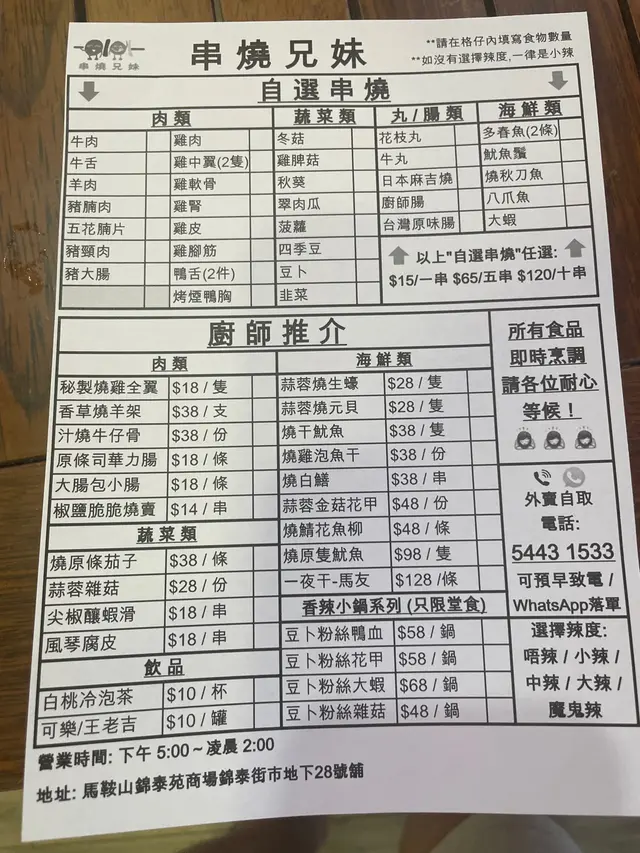 串燒兄妹
串燒兄妹
**請在格仔內填寫食物數量
**如沒有選擇辣度,一律是小辣
自選串燒
肉類
牛肉 雞肉
牛舌 雞中翼(2隻)
羊肉 雞軟骨
豬腩肉 雞腎
五花腩片 雞皮
豬頸肉 雞腳筋
豬大腸 鴨舌(2件)
烤煙鴨胸
蔬菜類
冬菇
雞脾菇
秋葵
翠肉瓜
菠蘿
四季豆
豆卜
韭菜
丸/腸類
花枝丸
牛丸
日本麻吉燒
廚師腸
台灣原味腸
海鮮類
多春魚(2條)
魷魚鬚
燒秋刀魚
八爪魚
大蝦
以上"自選串燒"任選:
$15/一串 $65/五串 $120/十串
廚師推介
肉類
秘製燒雞全翼 $18/隻
香草燒羊架 $38/支
汁燒牛仔骨 $38/份
原條司華力腸 $18/條
大腸包小腸 $18/條
椒鹽脆脆燒賣 $14/串
蔬菜類
燒原條茄子 $38/條
蒜蓉雜菇 $28/份
尖椒釀蝦滑 $18/串
風琴腐皮 $18/串
飲品
白桃冷泡茶 $10/杯
可樂/王老吉 $10/罐
海鮮類
蒜蓉燒生蠔 $28/隻
蒜蓉燒元貝 $28/隻
燒干魷魚 $38/隻
燒雞泡魚干 $38/份
燒白鱔 $38/串
蒜蓉金菇花甲 $48/份
燒鯖花魚柳 $48/條
燒原隻魷魚 $98/隻
一夜干-馬友 $128/條
香辣小鍋系列(只限堂食)
豆卜粉絲鴨血 $58/鍋
豆卜粉絲花甲 $58/鍋
豆卜粉絲大蝦 $68/鍋
豆卜粉絲雜菇 $48/鍋
所有食品
即時烹調
請各位耐心
等候！
外賣自取
電話:
5443 1533
可預早致電/
WhatsApp落單
選擇辣度:
唔辣/小辣/
中辣/大辣/
魔鬼辣
營業時間: 下午 5:00~凌晨 2:00
地址: 馬鞍山錦泰苑商場錦泰街市地下28號舖